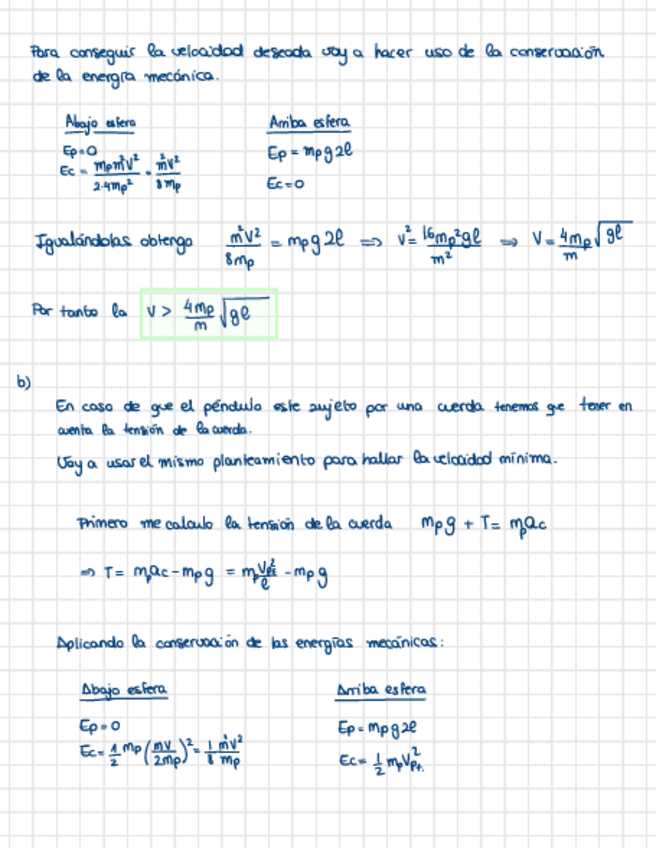 Para conseguir la velocidad deseada voy a hacer uso de la conservación
de la energía mecánica.
Abajo esfera
Ep=0
Ec = mpm²V²/2·4mp² = m²V²/8mp
Arriba esfera
Ep = mpg2l
Ec=0
Igualándolas obtengo m²V²/8mp = mpg2l => V² = 16mp²gl/m² => V = 4mp/m √gl
Por tanto la V > 4mp/m √gl
b)
En caso de que el péndulo este sujeto por una cuerda tenemos que tener en
cuenta la tensión de la cuerda.
Voy a usar el mismo planteamiento para hallar la velocidad mínima.
Primero me calculo la tensión de la cuerda mpg + T = mpac
=> T = mpac - mpg = mp /l - mpg
Aplicando la conservación de las energías mecánicas:
Abajo esfera
Ep=0
Ec = 1/2 mp (mV/2mp)² = 1/8 m²V²/mp
Arriba esfera
Ep = mpg2l
Ec = 1/2 mpVpf²